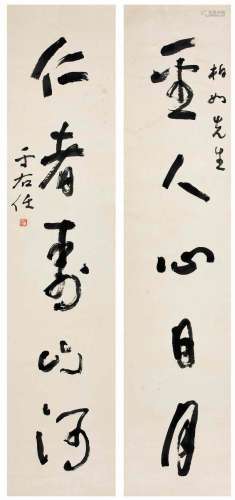 柏如先生
圣人心日月
仁者寿山河
于右任